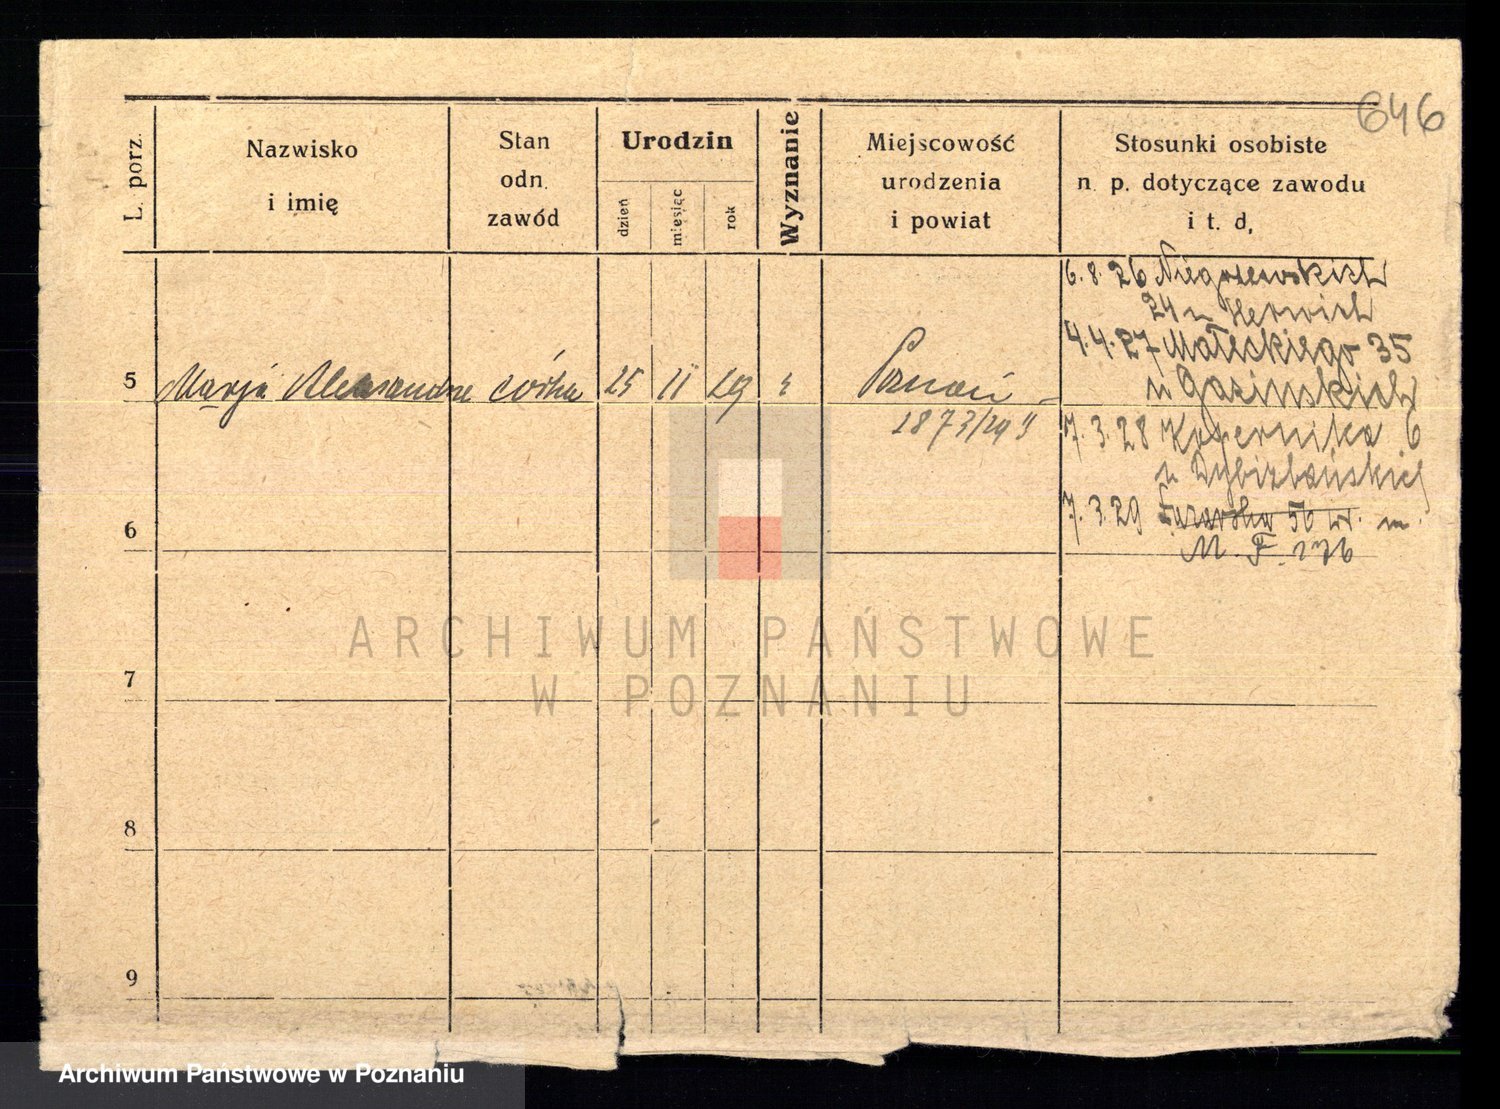 646
L. porz.
Nazwisko
i imię
Stan
odn.
zawód
Urodzin
dzień
miesiąc
rok
Wyznanie
Miejscowość
urodzenia
i powiat
Stosunki osobiste
n. p. dotyczące zawodu
i t. d,
6.8.26 Niegolewskich
24
4.4.27 Małeckiego 35
u
7.3.28 Kopernika 6
u
7.3.29 50
M. F. 176
5 Marja Aleksandra córka 25 II 29 Poznań
1873/29
6
7
8
9
ARCHIWUM PAŃSTWOWE
W POZNANIU
Archiwum Państwowe w Poznaniu